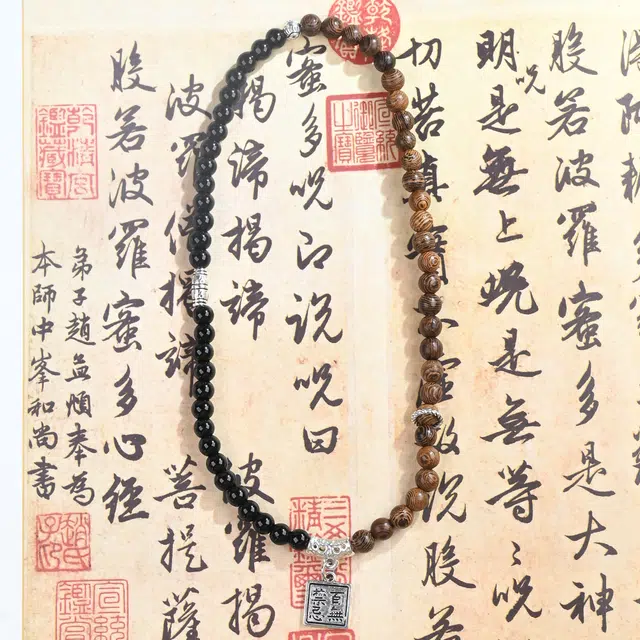 般若波羅蜜多是大神
明呪是無上呪是無等〻呪
切苦真實不虛故說般
蜜多呪即說呪曰
揭諦揭諦 波羅揭
波羅僧揭諦 菩提薩
般若波羅蜜多心經
弟子趙孟頫奉為
本師中峯和尚書